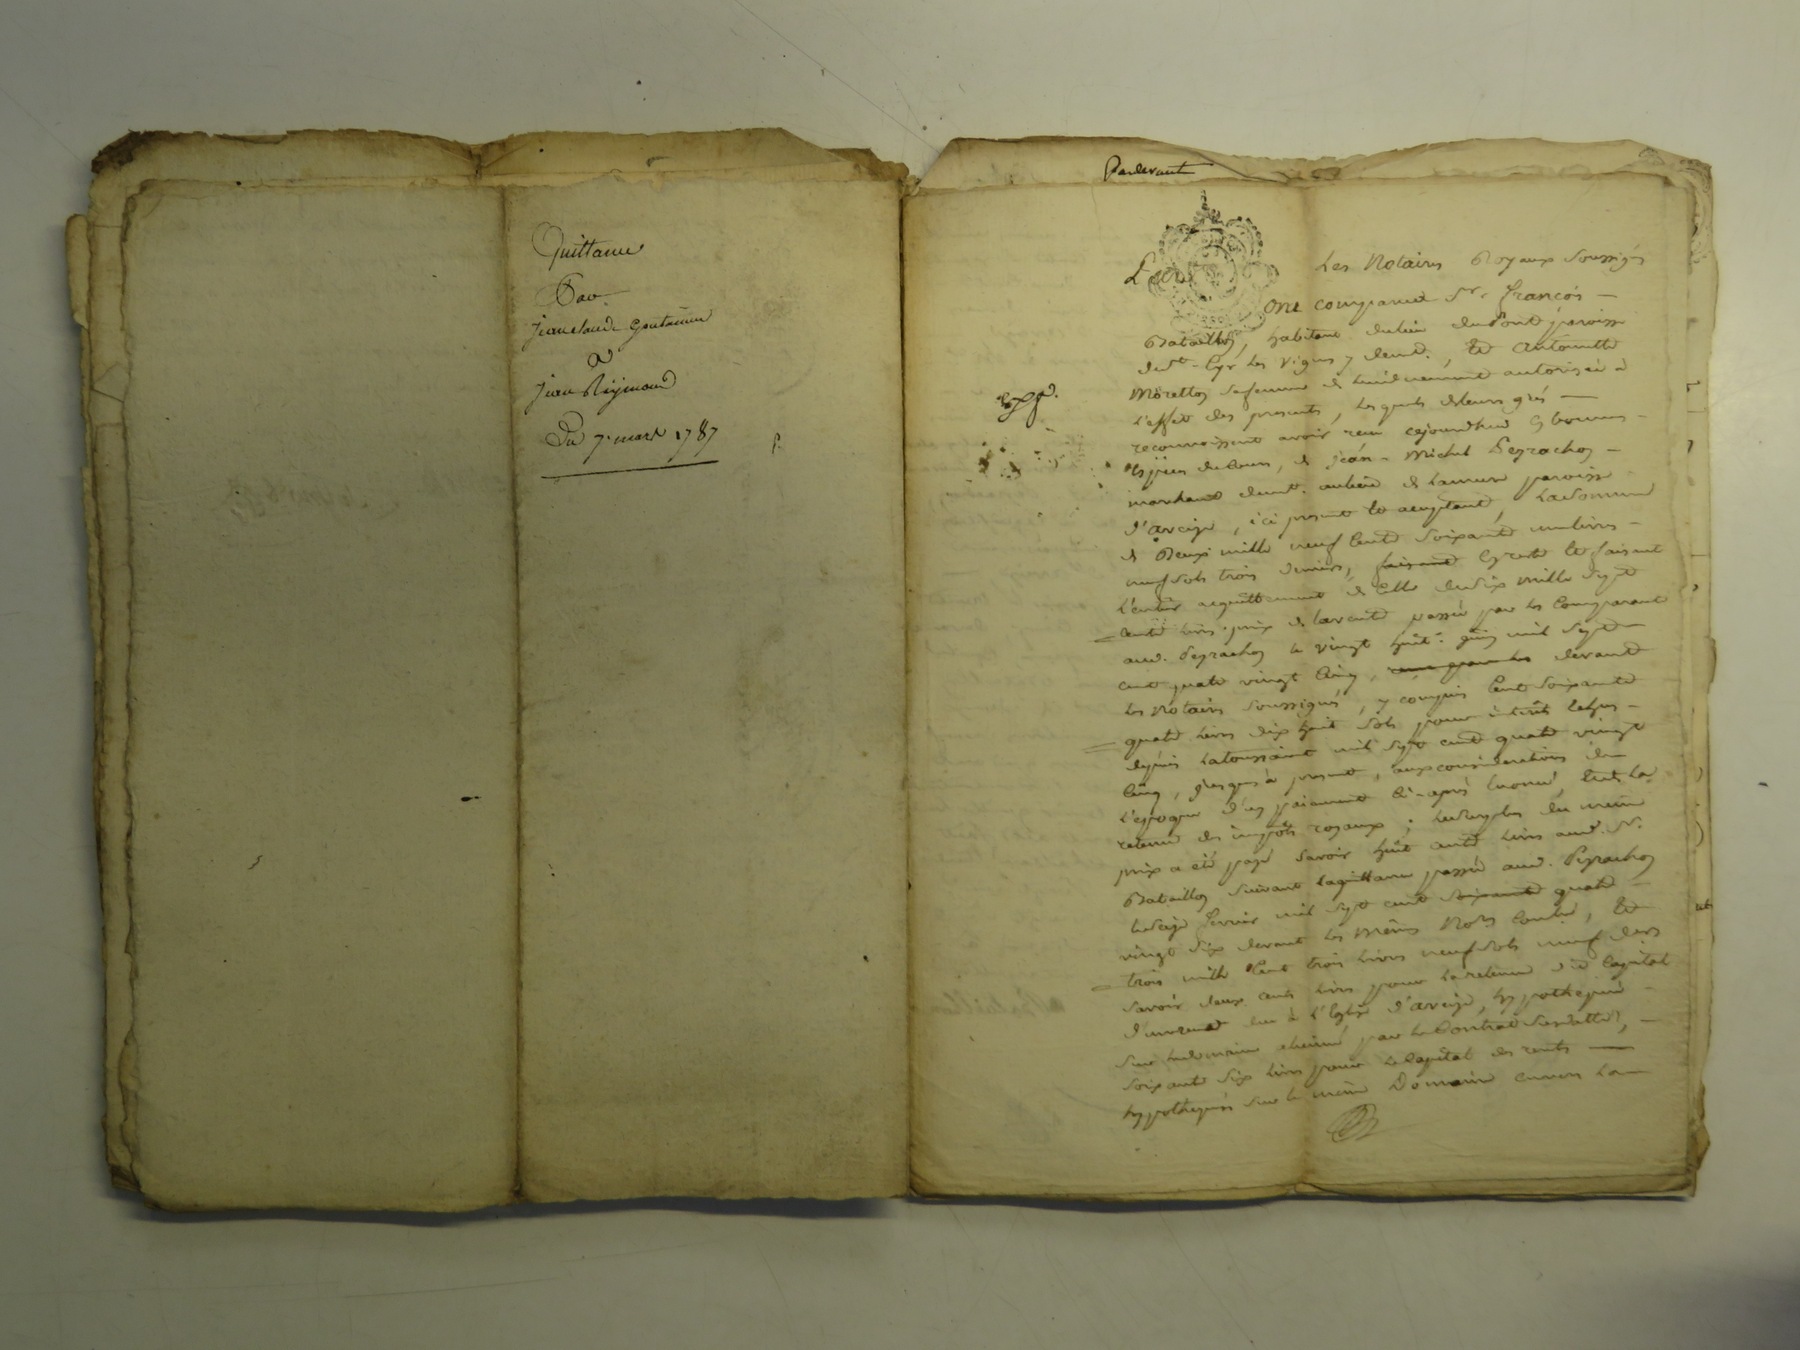 Quittance
Par
Jean claude Goutanne
a
Jean Reymond
Du 7. mars 1787
Pardevant
Les Notaires Royaux Soussignés
Ont comparus Sr. françois
Bataillon, habitant du lieu du Pont paroisse
de St. Cyr les Vignes y demt., Et Antoinette
Morellon sa femme de lui dûement autorisée à
L'effet des presentes, Lesquels de leurs grés
exp.
reconnoissent avoir reçu cejourdhui En bonnes
Espèces de Cours, de Jean-Michel Peyrachon
marchand demt. au lieu de Lamure paroisse
d'arcize, ici present Et acceptant, La Somme
de Deux mille neuf Cents Soixante une livres
neuf sols trois deniers, faisant Et reste Et faisant
L'entier acquittement de Celle de Six mille Sept
Cents livres prix de la vente passée par les Comparants
aud. Peyrachon le vingt huit juin mil Sept
cent quatre vingt Cinq, devant
les Notaires Soussignés, y compris Cent Soixante
quatre livres dix huit Sols pour intérêts Echus
depuis La toussaint mil Sept cent quatre vingt
Cinq, jusques à present, aux considerations de
L'epoque d'un paiement Ci-après énoncé, Et La
retenue des impôts royaux; Le Surplus du même
prix a été payé Savoir huit cents livres aud. Sr.
Bataillon Suivant La quittance passée aud. Peyrachon
le Seize fevrier mil Sept cent soixante quatre
vingt Six devant les Mêmes Nores. Et
trois mille Cent trois livres neuf Sols neuf ders
Savoir deux cents livres pour La retenue du Capital
d'une rente due à L'Eglise d'arcize, hypothequée
Sur le domaine aliené par le Contrat Susdatté,
Soixante Six livres pour le Capital des rentes
hypothequées Sur le même Domaine envers La